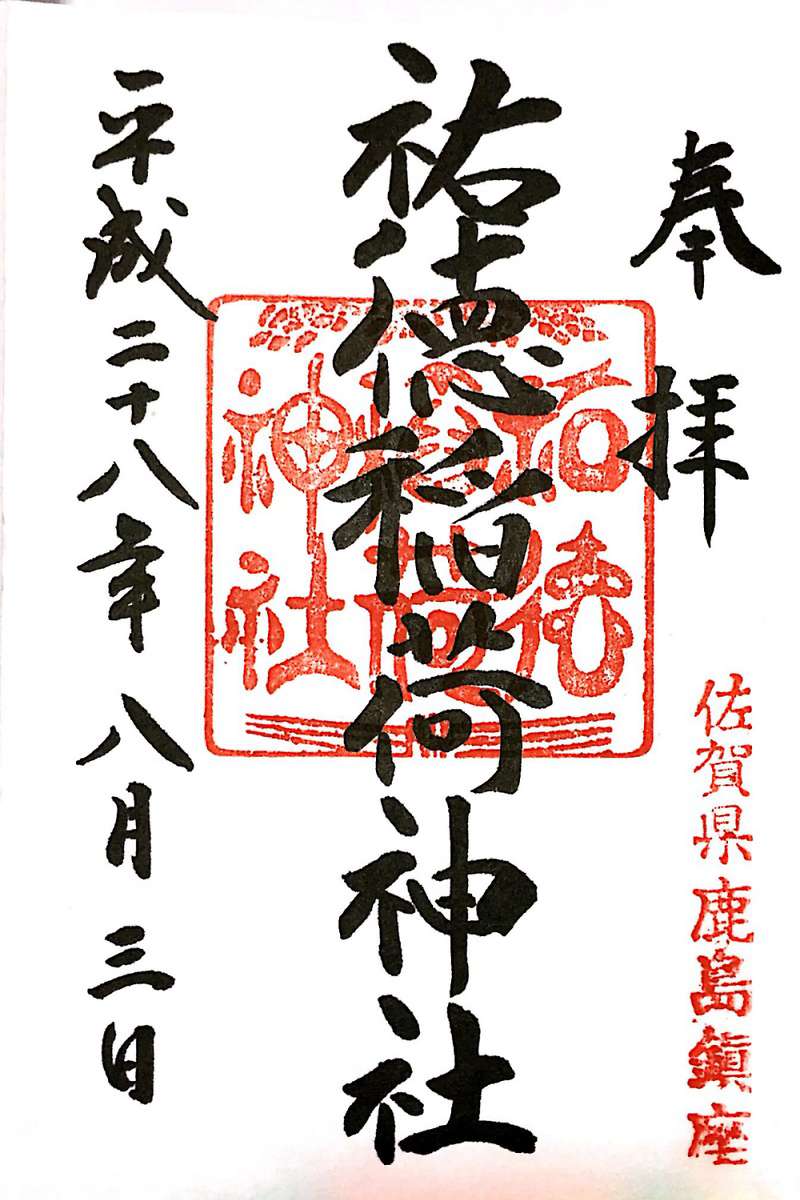 奉拝
佐賀県鹿島鎮座
祐徳稲荷神社
祐徳
稲荷
神社
平成二十八年八月三日